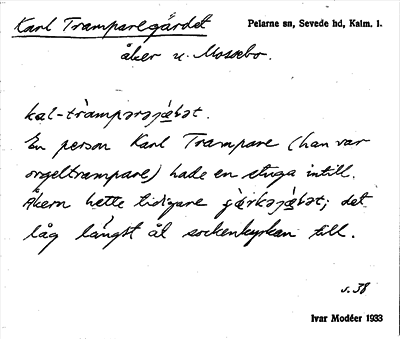 Karl Tramparegärdet
Pelarne sn, Sevede hd, Kalm. l.
åker u. Mossebo.
kal-tràmparəjæ̀ɫət.
En person Karl Trampare (han var
orgeltrampare) hade en stuga intill.
Åkern hette tidigare
det
låg längst åt sockenkyrkan till.
s. 38
Ivar Modéer 1933